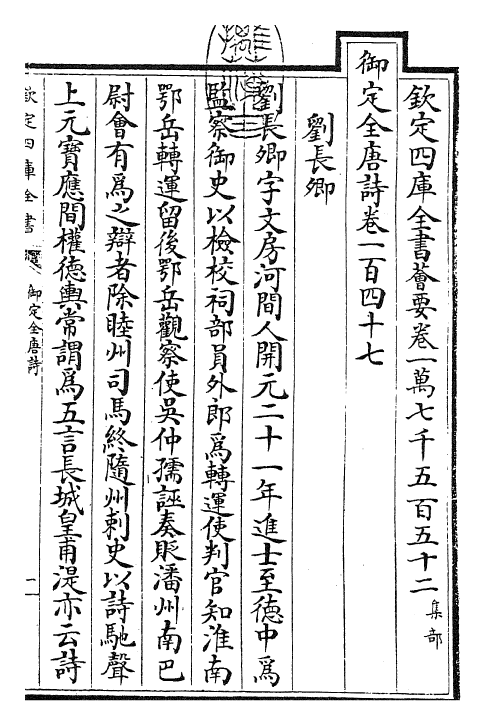 欽定四庫全書薈要卷一萬七千五百五十二 集部
御定全唐詩卷一百四十七
劉長卿
劉長卿字文房河間人開元二十一年進士至德中為
監察御史以檢校祠部員外郎為轉運使判官知淮南
鄂岳轉運留後鄂岳觀察使吳仲孺誣奏貶潘州南巴
尉會有為之辯者除睦州司馬終隨州刺史以詩馳聲
上元寶應間權德輿常謂為五言長城皇甫湜亦云詩
欽定四庫全書 御定全唐詩 一